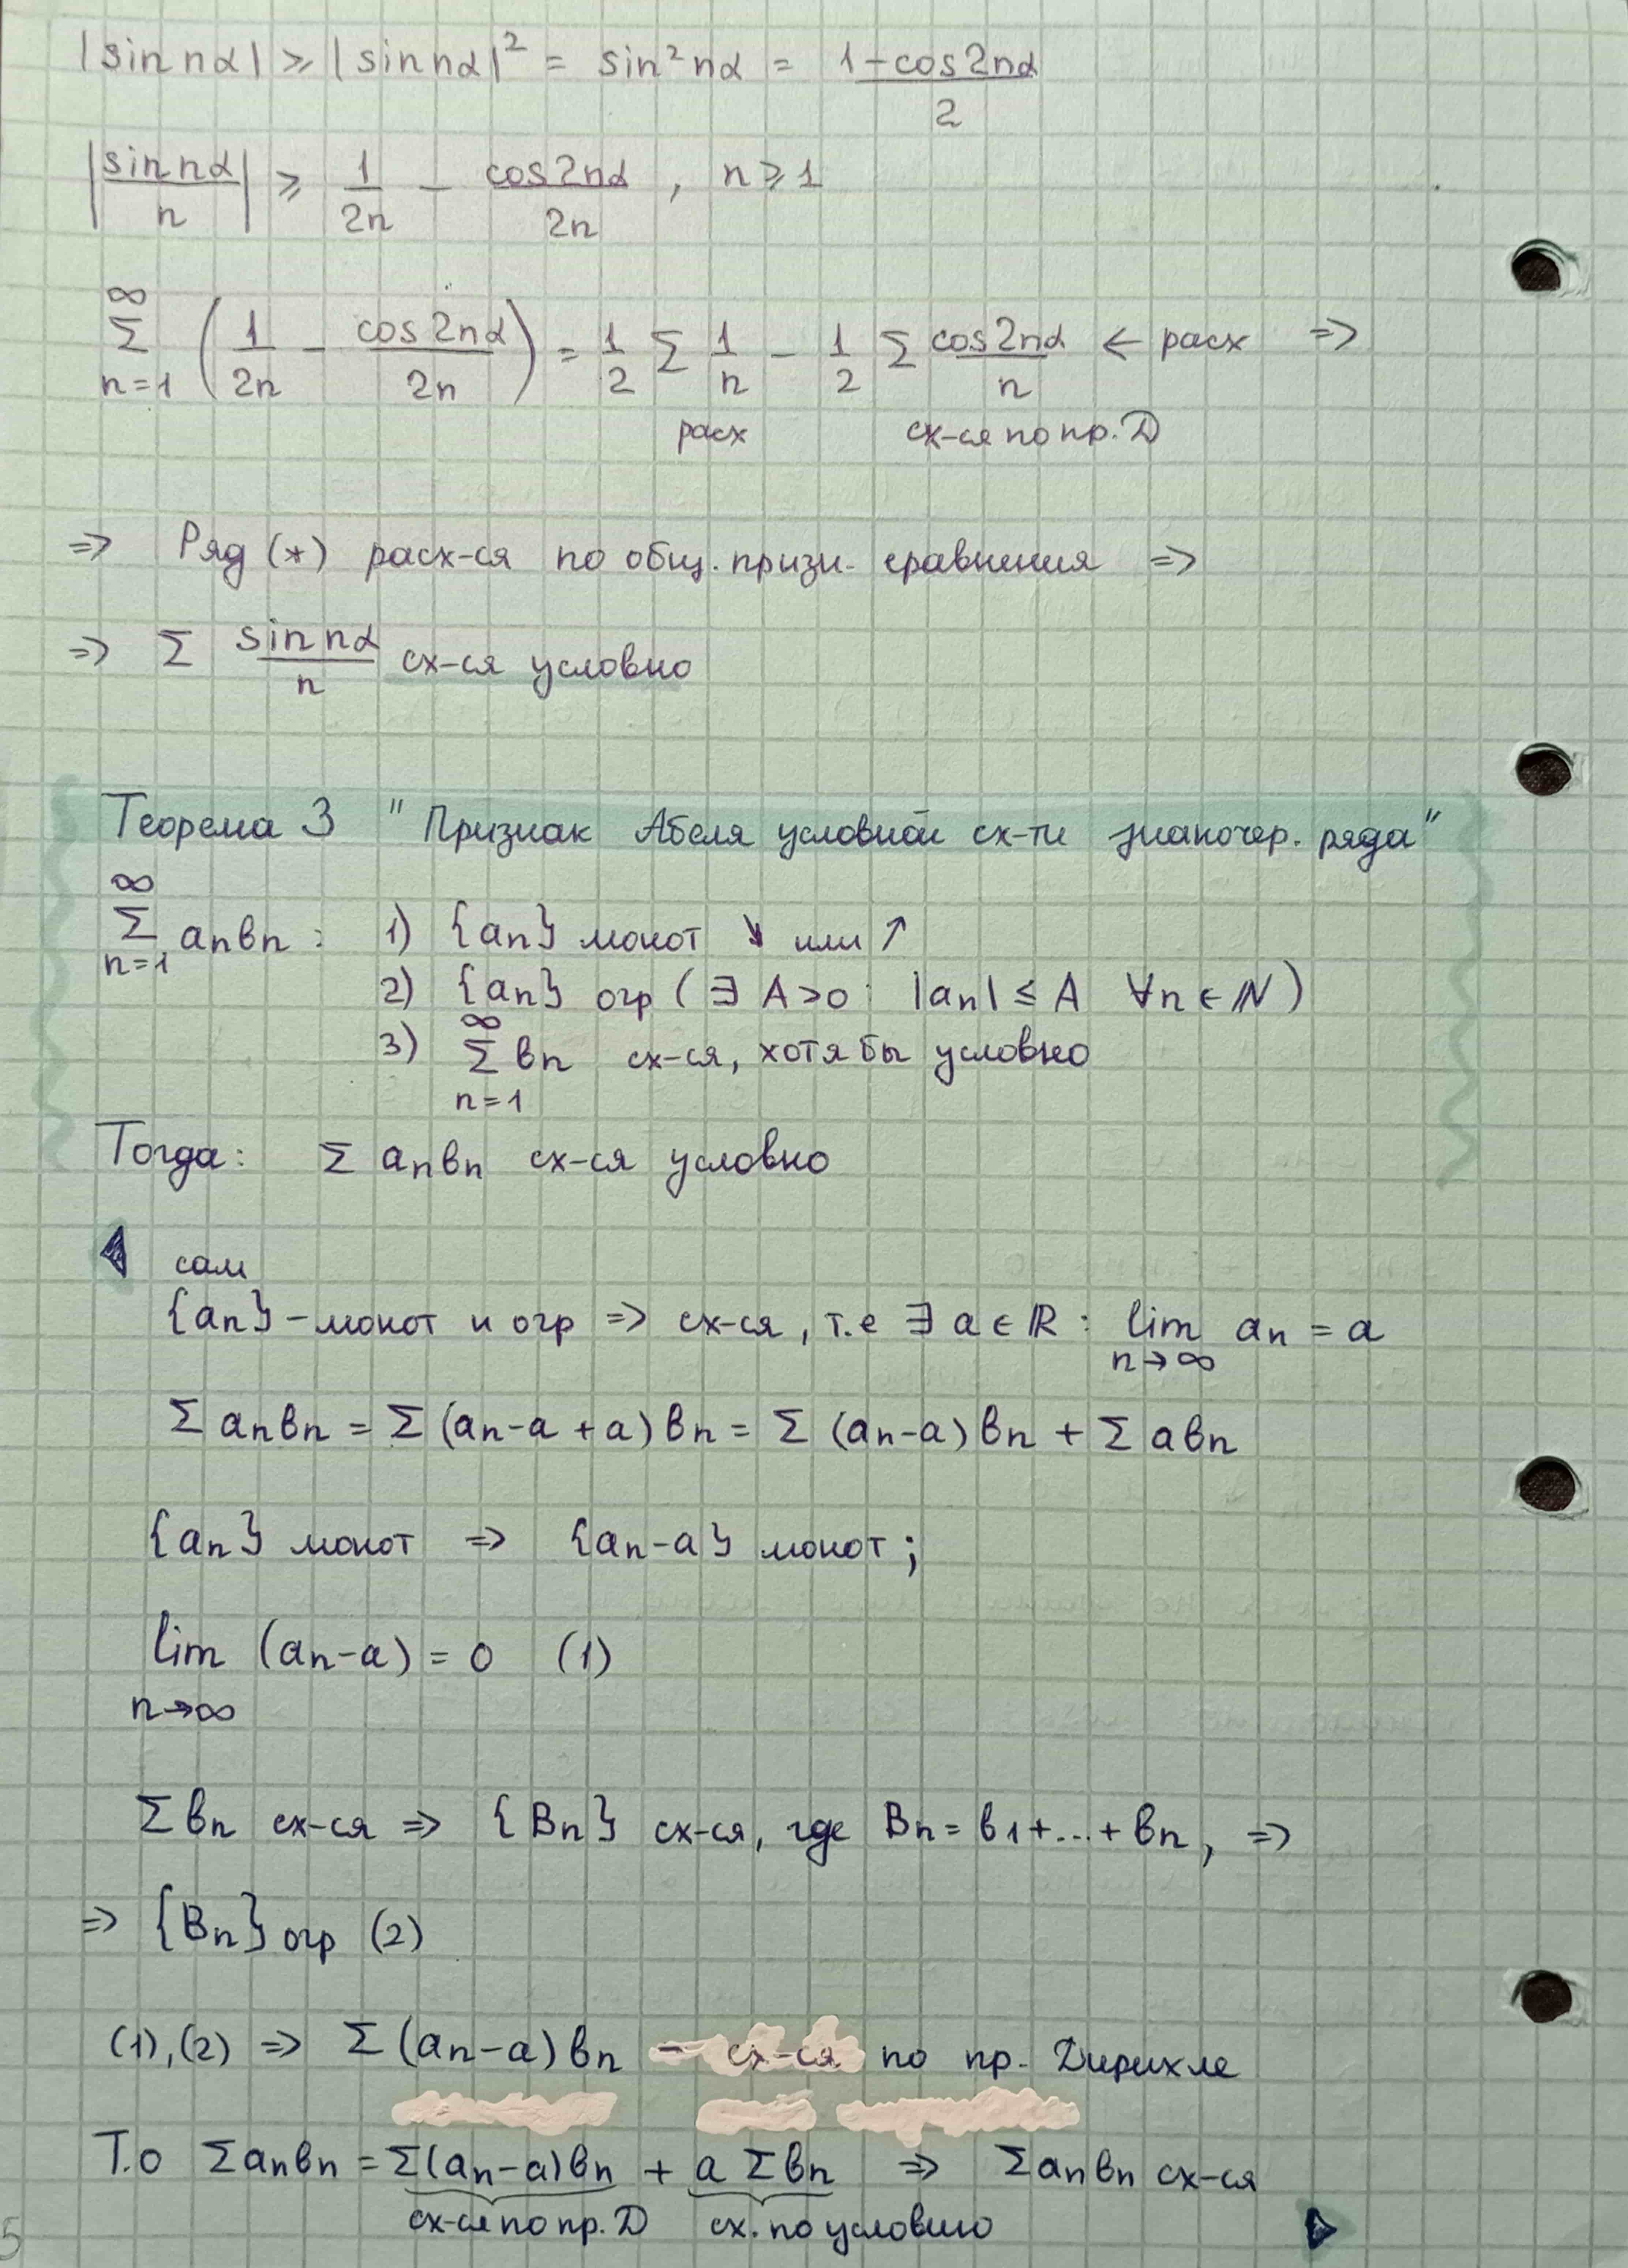 |sin nα| ≥ |sin nα|² = sin² nα = (1 - cos2nα)/2
|sin nα / n| ≥ 1/2n - cos2nα/2n , n ≥ 1
∞ Σ n=1 (1/2n - cos2nα/2n) = 1/2 Σ 1/n - 1/2 Σ cos2nα/n ← расх ⇒
расх сх-ся по пр. D
⇒ Ряд (*) расх-ся по общ. призн. сравнения ⇒
⇒ Σ sin nα/n сх-ся условно
Теорема 3 "Признак Абеля условной сх-ти знакочер. ряда"
∞ Σ n=1 aₙbₙ : 1) {aₙ} монот ↘ или ↗
2) {aₙ} огр (∃ A>0 : |aₙ| ≤ A ∀n ∈ ℕ)
3) ∞ Σ n=1 bₙ сх-ся, хотя бы условно
Тогда: Σ aₙbₙ сх-ся условно
сам
{aₙ} - монот и огр ⇒ сх-ся, т.е ∃ a ∈ ℝ : lim n→∞ aₙ = a
Σ aₙbₙ = Σ (aₙ - a + a) bₙ = Σ (aₙ - a) bₙ + Σ abₙ
{aₙ} монот ⇒ {aₙ - a} монот ;
lim n→∞ (aₙ - a) = 0 (1)
Σ bₙ сх-ся ⇒ {Bₙ} сх-ся, где Bₙ = b₁ + ... + bₙ , ⇒
⇒ {Bₙ} огр (2)
(1), (2) ⇒ Σ (aₙ - a) bₙ - сх-ся по пр. Дирихле
Т.о Σ aₙbₙ = Σ(aₙ - a)bₙ + a Σ bₙ ⇒ Σ aₙbₙ сх-ся
сх-ся по пр. D сх. по условию
5